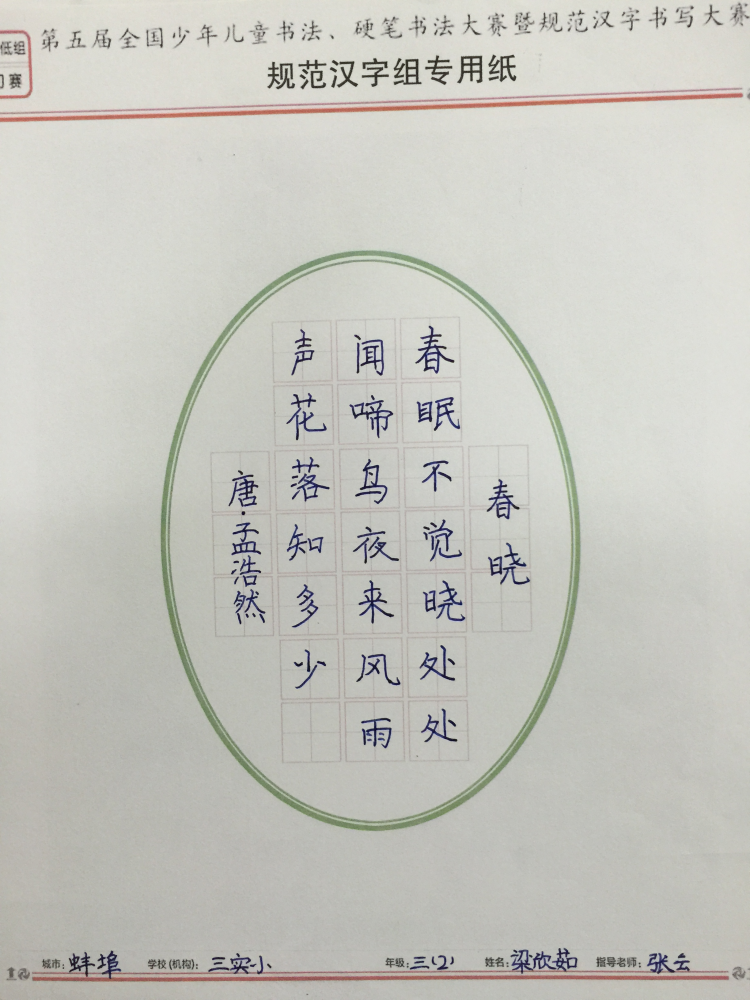 第五届全国少年儿童书法、硬笔书法大赛暨规范汉字书写大赛
低组
赛
规范汉字组专用纸
春晓
春眠不觉晓处处
闻啼鸟夜来风雨
声花落知多少
唐·孟浩然
城市：蚌埠 学校(机构)：三实小 年级：三(2) 姓名：梁欣茹 指导老师：张云